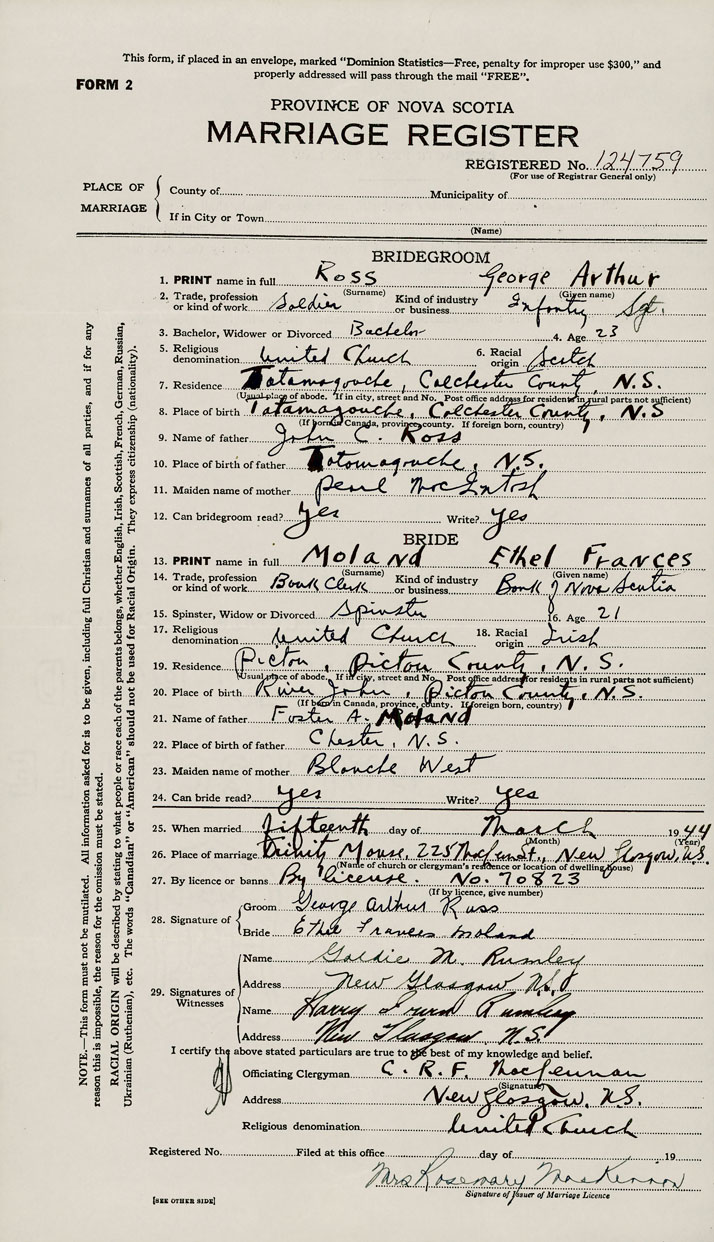 This form, if placed in an envelope, marked "Dominion Statistics—Free, penalty for improper use $300," and
properly addressed will pass through the mail "FREE".
FORM 2
PROVINCE OF NOVA SCOTIA
MARRIAGE REGISTER
REGISTERED No. 124759
(For use of Registrar General only)
PLACE OF MARRIAGE
County of Municipality of
If in City or Town
(Name)
BRIDEGROOM
1. PRINT name in full Ross George Arthur
(Surname) (Given name)
2. Trade, profession or kind of work Soldier Kind of industry or business Infantry Sgt.
3. Bachelor, Widower or Divorced Bachelor 4. Age 23
5. Religious denomination United Church 6. Racial origin Scotch
7. Residence Tatamagouche, Colchester County, N.S.
(Usual place of abode. If in city, street and No. Post office address for residents in rural parts not sufficient)
8. Place of birth Tatamagouche, Colchester County, N.S
(If born in Canada, province, county. If foreign born, country)
9. Name of father John C. Ross
10. Place of birth of father Tatamagouche, N.S.
11. Maiden name of mother Pearl MacIntosh
12. Can bridegroom read? Yes Write? Yes
BRIDE
13. PRINT name in full Moland Ethel Frances
(Surname) (Given name)
14. Trade, profession or kind of work Bank Clerk Kind of industry or business Bank of Nova Scotia
15. Spinster, Widow or Divorced Spinster 16. Age 21
17. Religious denomination United Church 18. Racial origin Irish
19. Residence Pictou, Pictou County, N.S.
(Usual place of abode. If in city, street and No. Post office address for residents in rural parts not sufficient)
20. Place of birth River John, Pictou County, N.S.
(If born in Canada, province, county. If foreign born, country)
21. Name of father Foster A. Moland
22. Place of birth of father Chester, N.S.
23. Maiden name of mother Blanche West
24. Can bride read? Yes Write? Yes
25. When married fifteenth day of March 1944
(Month) (Year)
26. Place of marriage Trinity Manse, 225 New Glasgow, N.S.
(Name of church or clergyman's residence or location of dwelling house)
27. By licence or banns By license. No. 70823
(If by licence, give number)
28. Signature of
Groom George Arthur Ross
Bride Ethel Frances Moland
29. Signatures of Witnesses
Name Goldie M. Rumley
Address New Glasgow N.S.
Name Harry Irwin Rumley
Address New Glasgow, N.S.
I certify the above stated particulars are true to the best of my knowledge and belief.
Officiating Clergyman C. R. F. MacLennan
(Signature)
Address New Glasgow, N.S.
Religious denomination United Church
Registered No. Filed at this office day of 19
Mrs Rosemary MacKinnon
Signature of Issuer of Marriage Licence
[SEE OTHER SIDE]
NOTE.—This form must not be mutilated. All information asked for is to be given, including full Christian and surnames of all parties, and if for any
reason this is impossible, the reason for the omission must be stated.
RACIAL ORIGIN will be described by stating to what people or race each of the parents belongs, whether English, Irish, Scottish, French, German, Russian,
Ukrainian (Ruthenian), etc. The words "Canadian" or "American" should not be used for Racial Origin. They express citizenship (nationality).